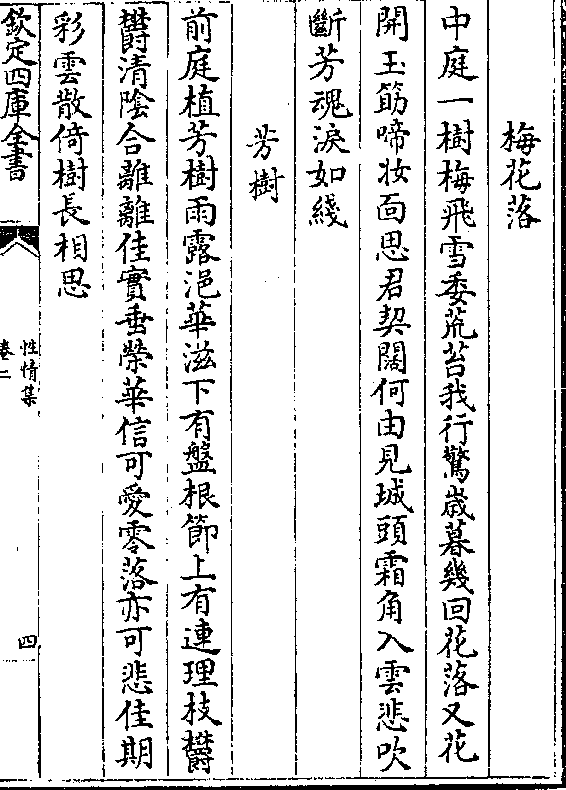 梅花落
中庭一樹梅飛雪委荒苔我行驚歲暮幾回花落又花
開玉筯啼妝面思君契闊何由見城頭霜角入雲悲吹
斷芳魂淚如綫
芳樹
前庭植芳樹雨露浥華滋下有盤根節上有連理枝欝
欝清陰合離離佳實垂榮華信可愛零落亦可悲佳期
彩雲散倚樹長相思
欽定四庫全書
性情集
卷二
四